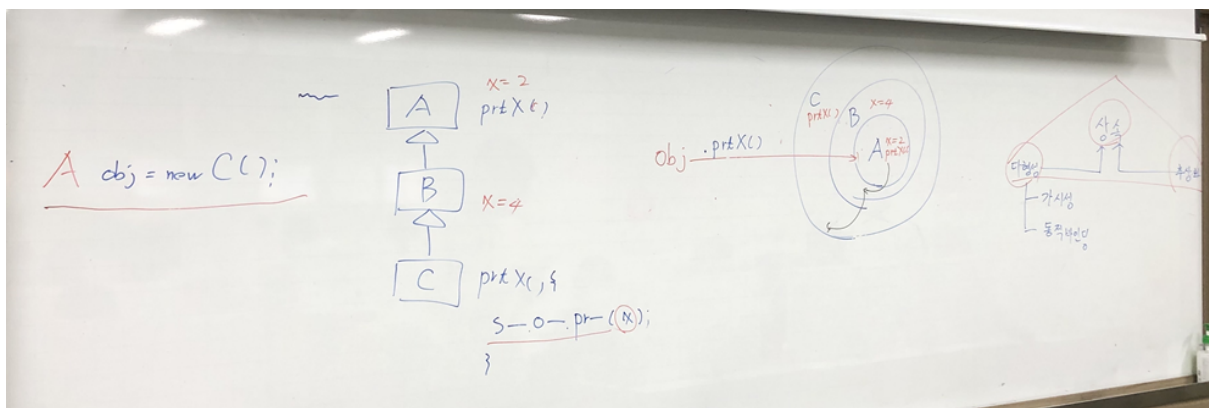 A obj = new C();
A
x=2
prtX()
B
x=4
C
prtX(){
S—.O—.pr—(x);
}
Obj .prtX()
C
prtX()
B
x=4
A
x=2
prtX()
상속
다형성
추상화
가시성
동적바인딩